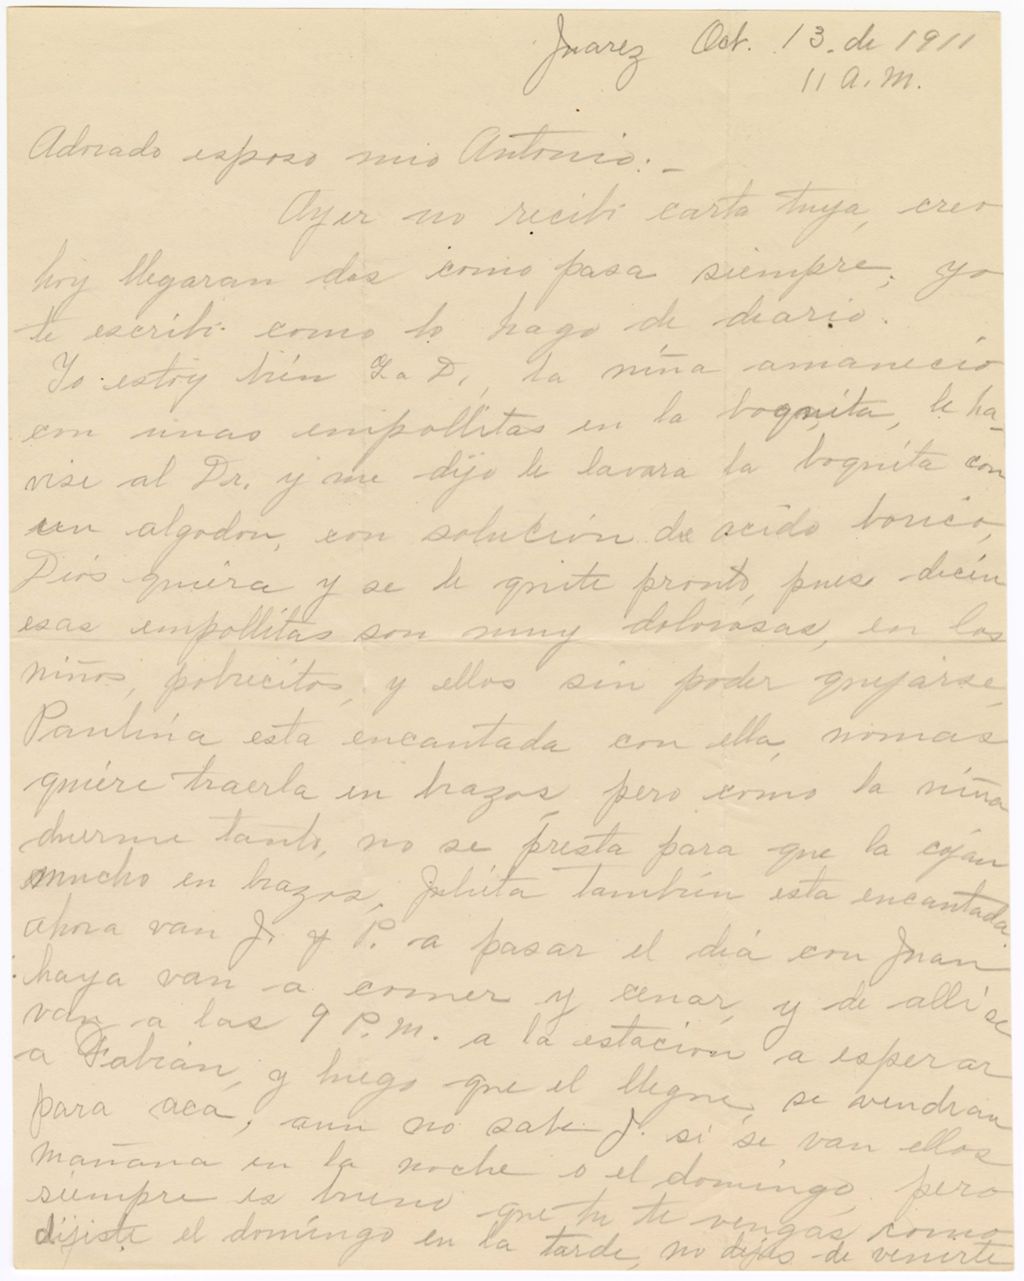 Juarez Oct. 13. de 1911
11 A.M.
Adorado esposo mio Antonio:-
Ayer no recibi carta tuya, creo
hoy llegaran dos como pasa siempre; yo
te escribi como lo hago de diario.
Yo estoy bién G. a D., la niña amaneció
con unas empollitas en la boquita, le ha-
vise al Dr. y me dijo le lavara la boquita con
un algodon, con solución de acido borico,
Dios quiéra y se le quite pronto, pues dicén
esas empollitas son muy dolorosas, en los
niños, pobrecitos, y ellos sin poder quejarse,
Paulina esta encantada con ella, nomas
quiére traerla en brazos, pero como la niña
duerme tanto, no se presta para que la cojan
mucho en brazos, Juliéta también esta encantada.
ahora van J. y P. a pasar el diá con Juan
haya van a comer y cenar, y de alli se
van a las 9 P.M. a la estación a esperar
a Fabián, y luego que el llegue, se vendran
para aca, aun no sabe J. si se van ellos
mañana en la noche o el domingo, pero
siempre es bueno que tu te vengas como
dijiste el domingo en la tarde, no dejes de venirte